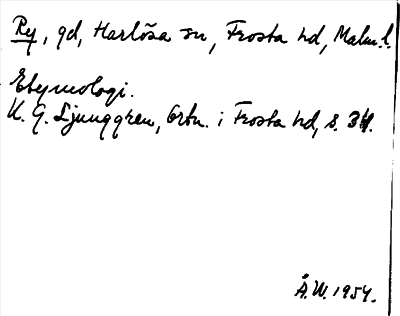 Ry, gd, Harlösa sn, Frosta hd, Malm. l.
Etymologi.
K. G. Ljunggren, Ortn. i Frosta hd, s. 34.
Å.W. 1954.